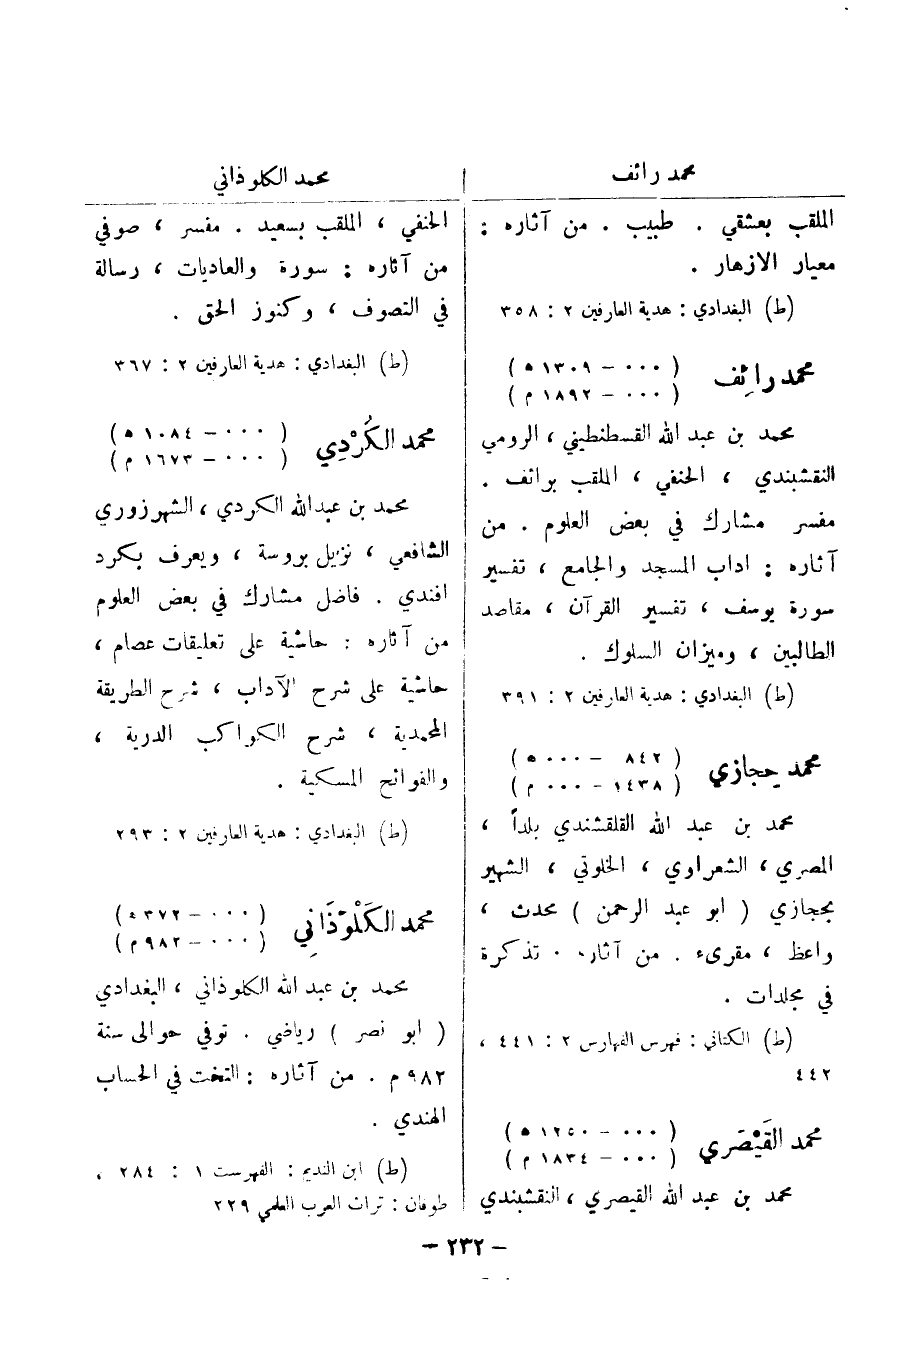 محمد رائف
الملقب بعشقي . طبيب . من آثاره :
معيار الازهار .
(ط) البغدادي : هدية العارفين ٢ : ٣٥٨
محمد رائِف
( ٠٠٠ – ١٣٠٩ ه )
( ٠٠٠ – ١٨٩٢ م )
محمد بن عبد الله القسطنطيني ، الرومي
النقشبندي ، الحنفي ، الملقب برائف .
مفسر مشارك في بعض العلوم . من
آثاره : اداب المسجد والجامع ، تفسير
سورة يوسف ، تفسير القرآن ، مقاصد
الطالبين ، وميزان السلوك .
(ط) البغدادي : هدية العارفين ٢ : ٣٩١
محمد حِجازي
( ٨٤٢ – ٠٠٠ ه )
( ١٤٣٨ – ٠٠٠ م )
محمد بن عبد الله القلقشندي بلداً ،
المصري ، الشعراوي ، الخلوتي ، الشهير
بحجازي ( ابو عبد الرحمن ) محدث ،
واعظ ، مقرىء . من آثاره . تذكرة
في مجلدات .
(ط) الكتاني : فهرس الفهارس ٢ : ٤٤١ ،
٤٤٢
محمد القَيْصَري
( ٠٠٠ – ١٢٥٠ ه )
( ٠٠٠ – ١٨٣٤ م )
محمد بن عبد الله القيصري ، النقشبندي
محمد الكلوذاني
الحنفي ، الملقب بسعيد . مفسر ، صوفي
من آثاره : سورة والعاديات ، رسالة
في التصوف ، وكنوز الحق .
(ط) البغدادي : هدية العارفين ٢ : ٣٦٧
محمد الكُرْدِي
( ٠٠٠ – ١٠٨٤ ه )
( ٠٠٠ – ١٦٧٣ م )
محمد بن عبدالله الكردي ، الشهرزوري
الشافعي ، نزيل بروسة ، ويعرف بكرد
افندي . فاضل مشارك في بعض العلوم
من آثاره : حاشية على تعليقات عصام ،
حاشية على شرح الآداب ، شرح الطريقة
المحمدية ، شرح الكواكب الدرية ،
والفوائح المسكية .
(ط) البغدادي : هدية العارفين ٢ : ٢٩٣
محمد الكَلْوَذَانِي
( ٠٠٠ – ٣٧٢ ه )
( ٠٠٠ – ٩٨٢ م )
محمد بن عبد الله الكلوذاني ، البغدادي
( ابو نصر ) رياضي . توفي حوالى سنة
٩٨٢ م . من آثاره : التخت في الحساب
الهندي .
(ط) ابن النديم : الفهرست ١ : ٢٨٤ ،
طوقان : تراث العرب العلمي ٢٢٩
– ٢٣٢ –